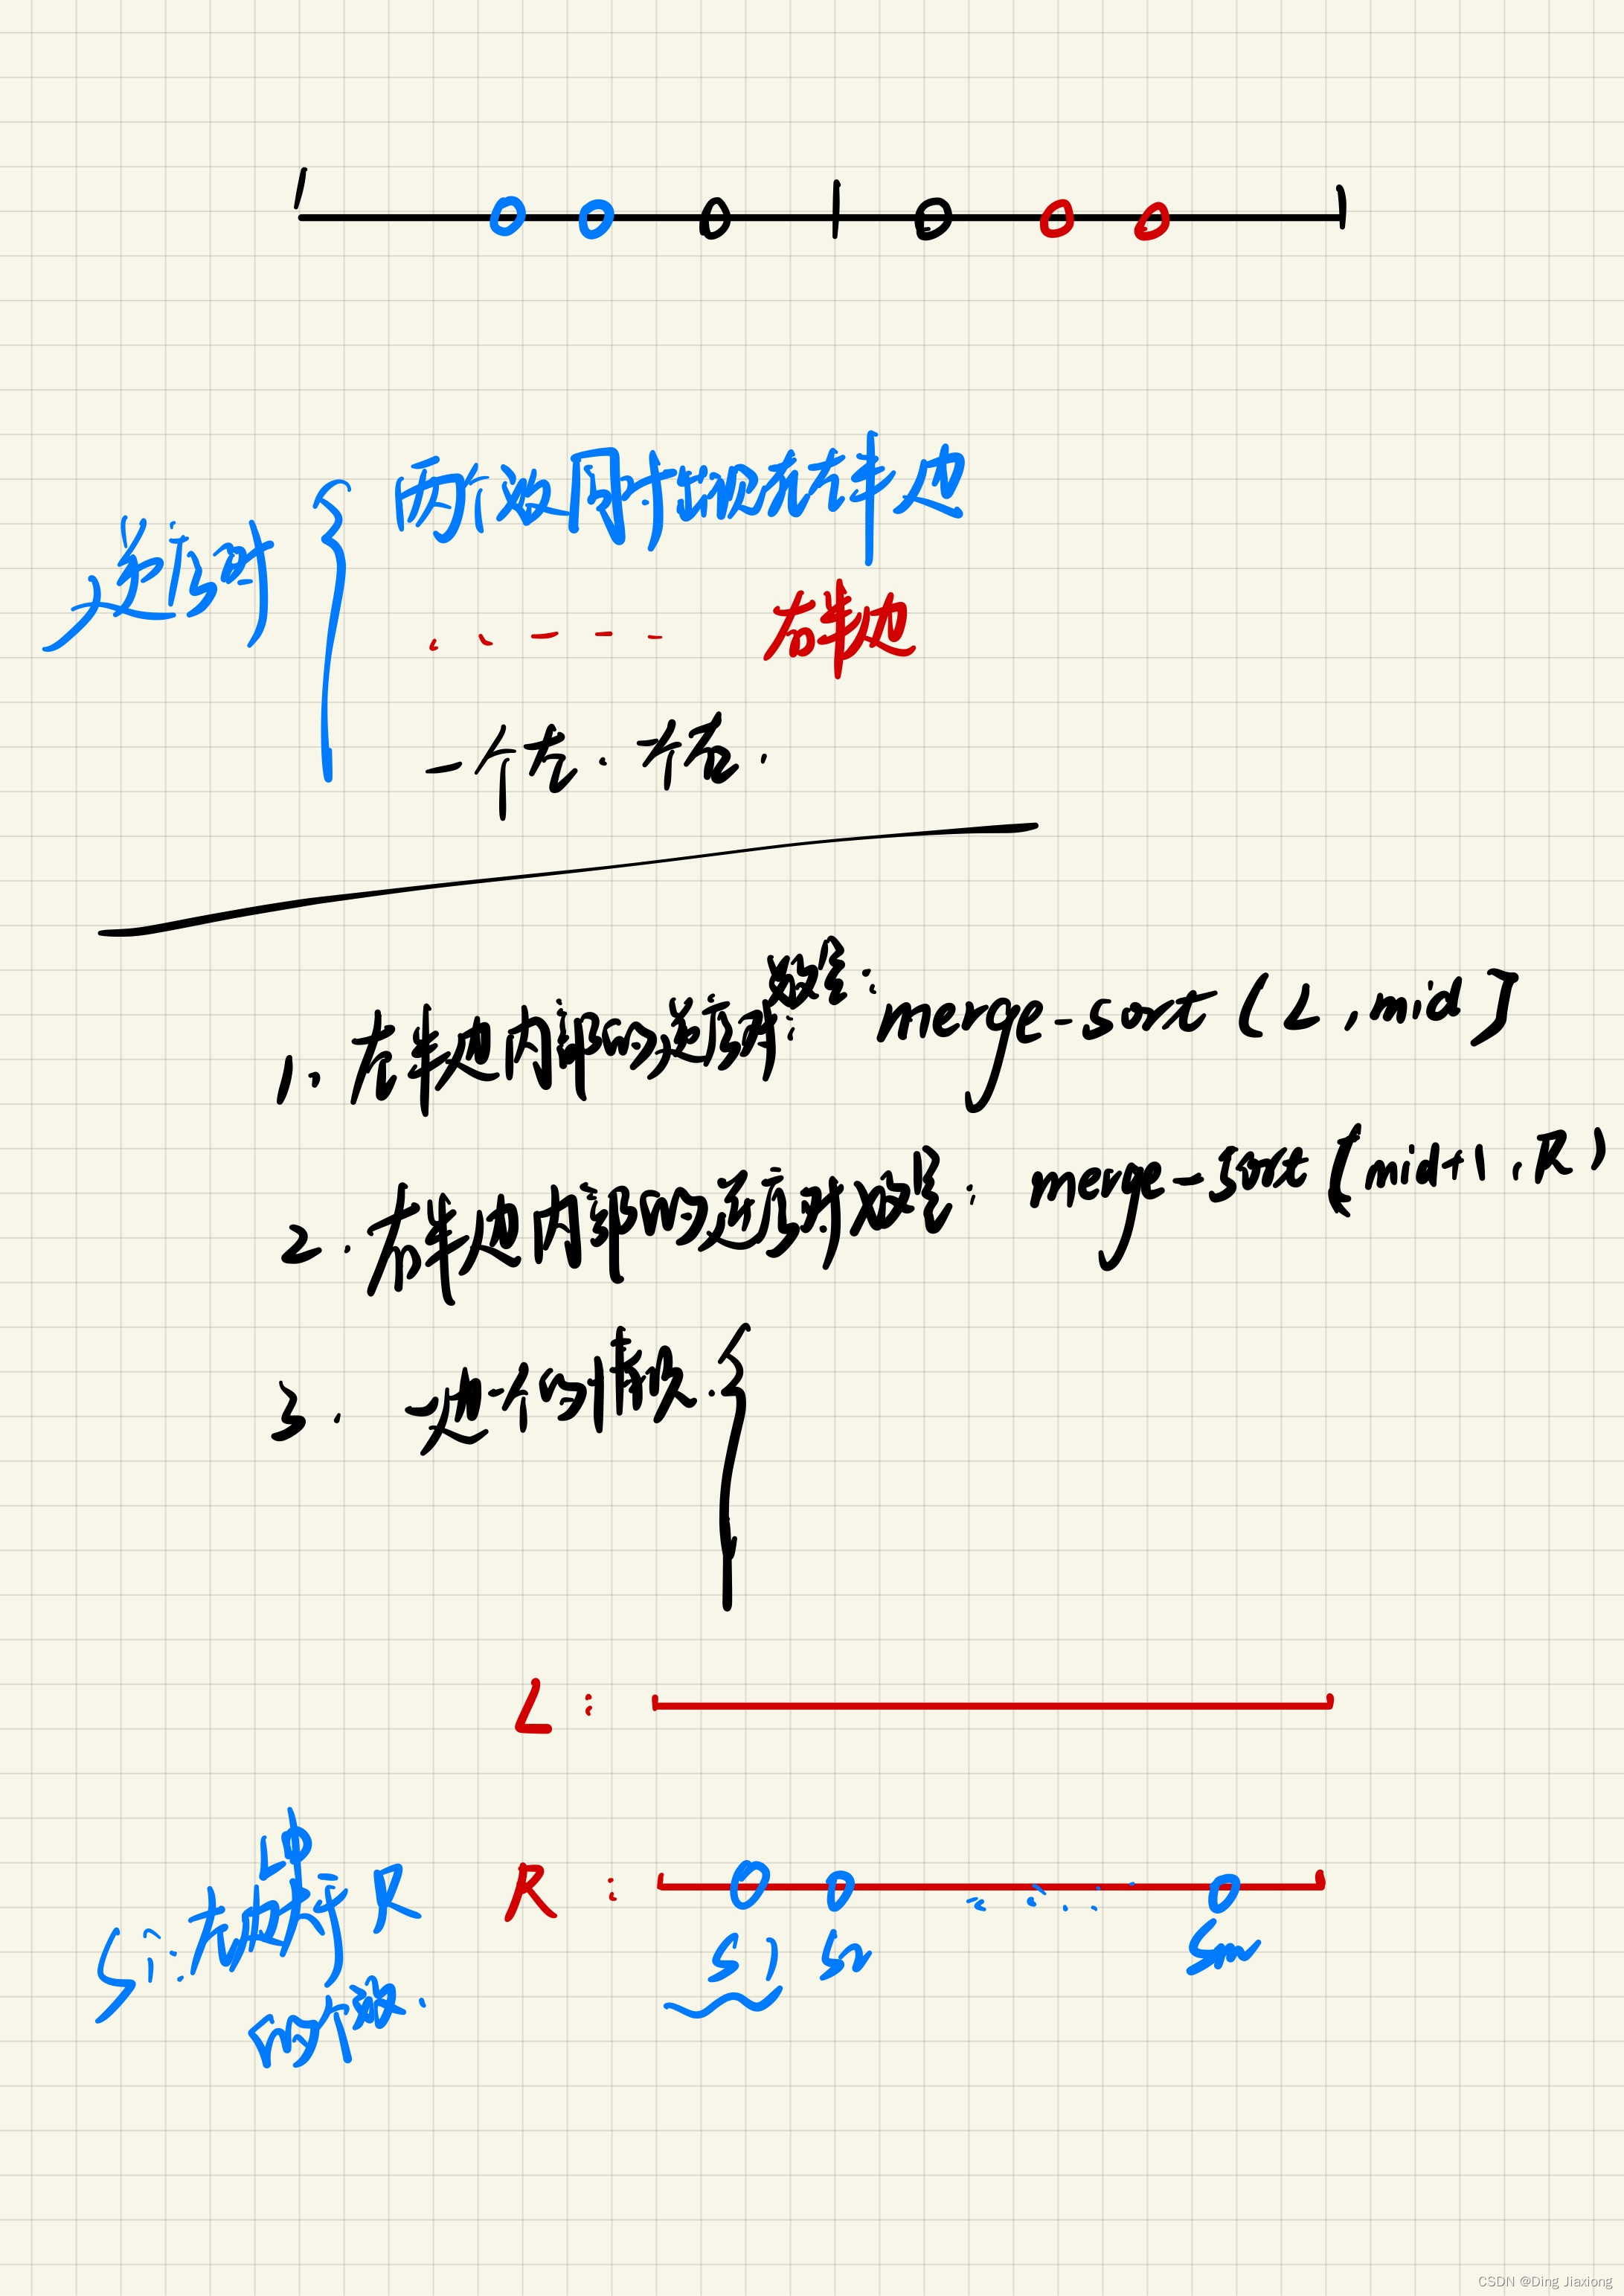 两个数同时出现在左半边
逆序对
右半边
一个左.一个右.
数量:
1. 左半边内部的逆序对: merge-sort(L,mid]
2. 右半边内部的逆序对数量: merge-sort(mid+1,R)
3. 一边一个的情况.
L:
R:
S1 S2 Sm
Si:左边 R
的个数.
CSDN @Ding Jiaxiong